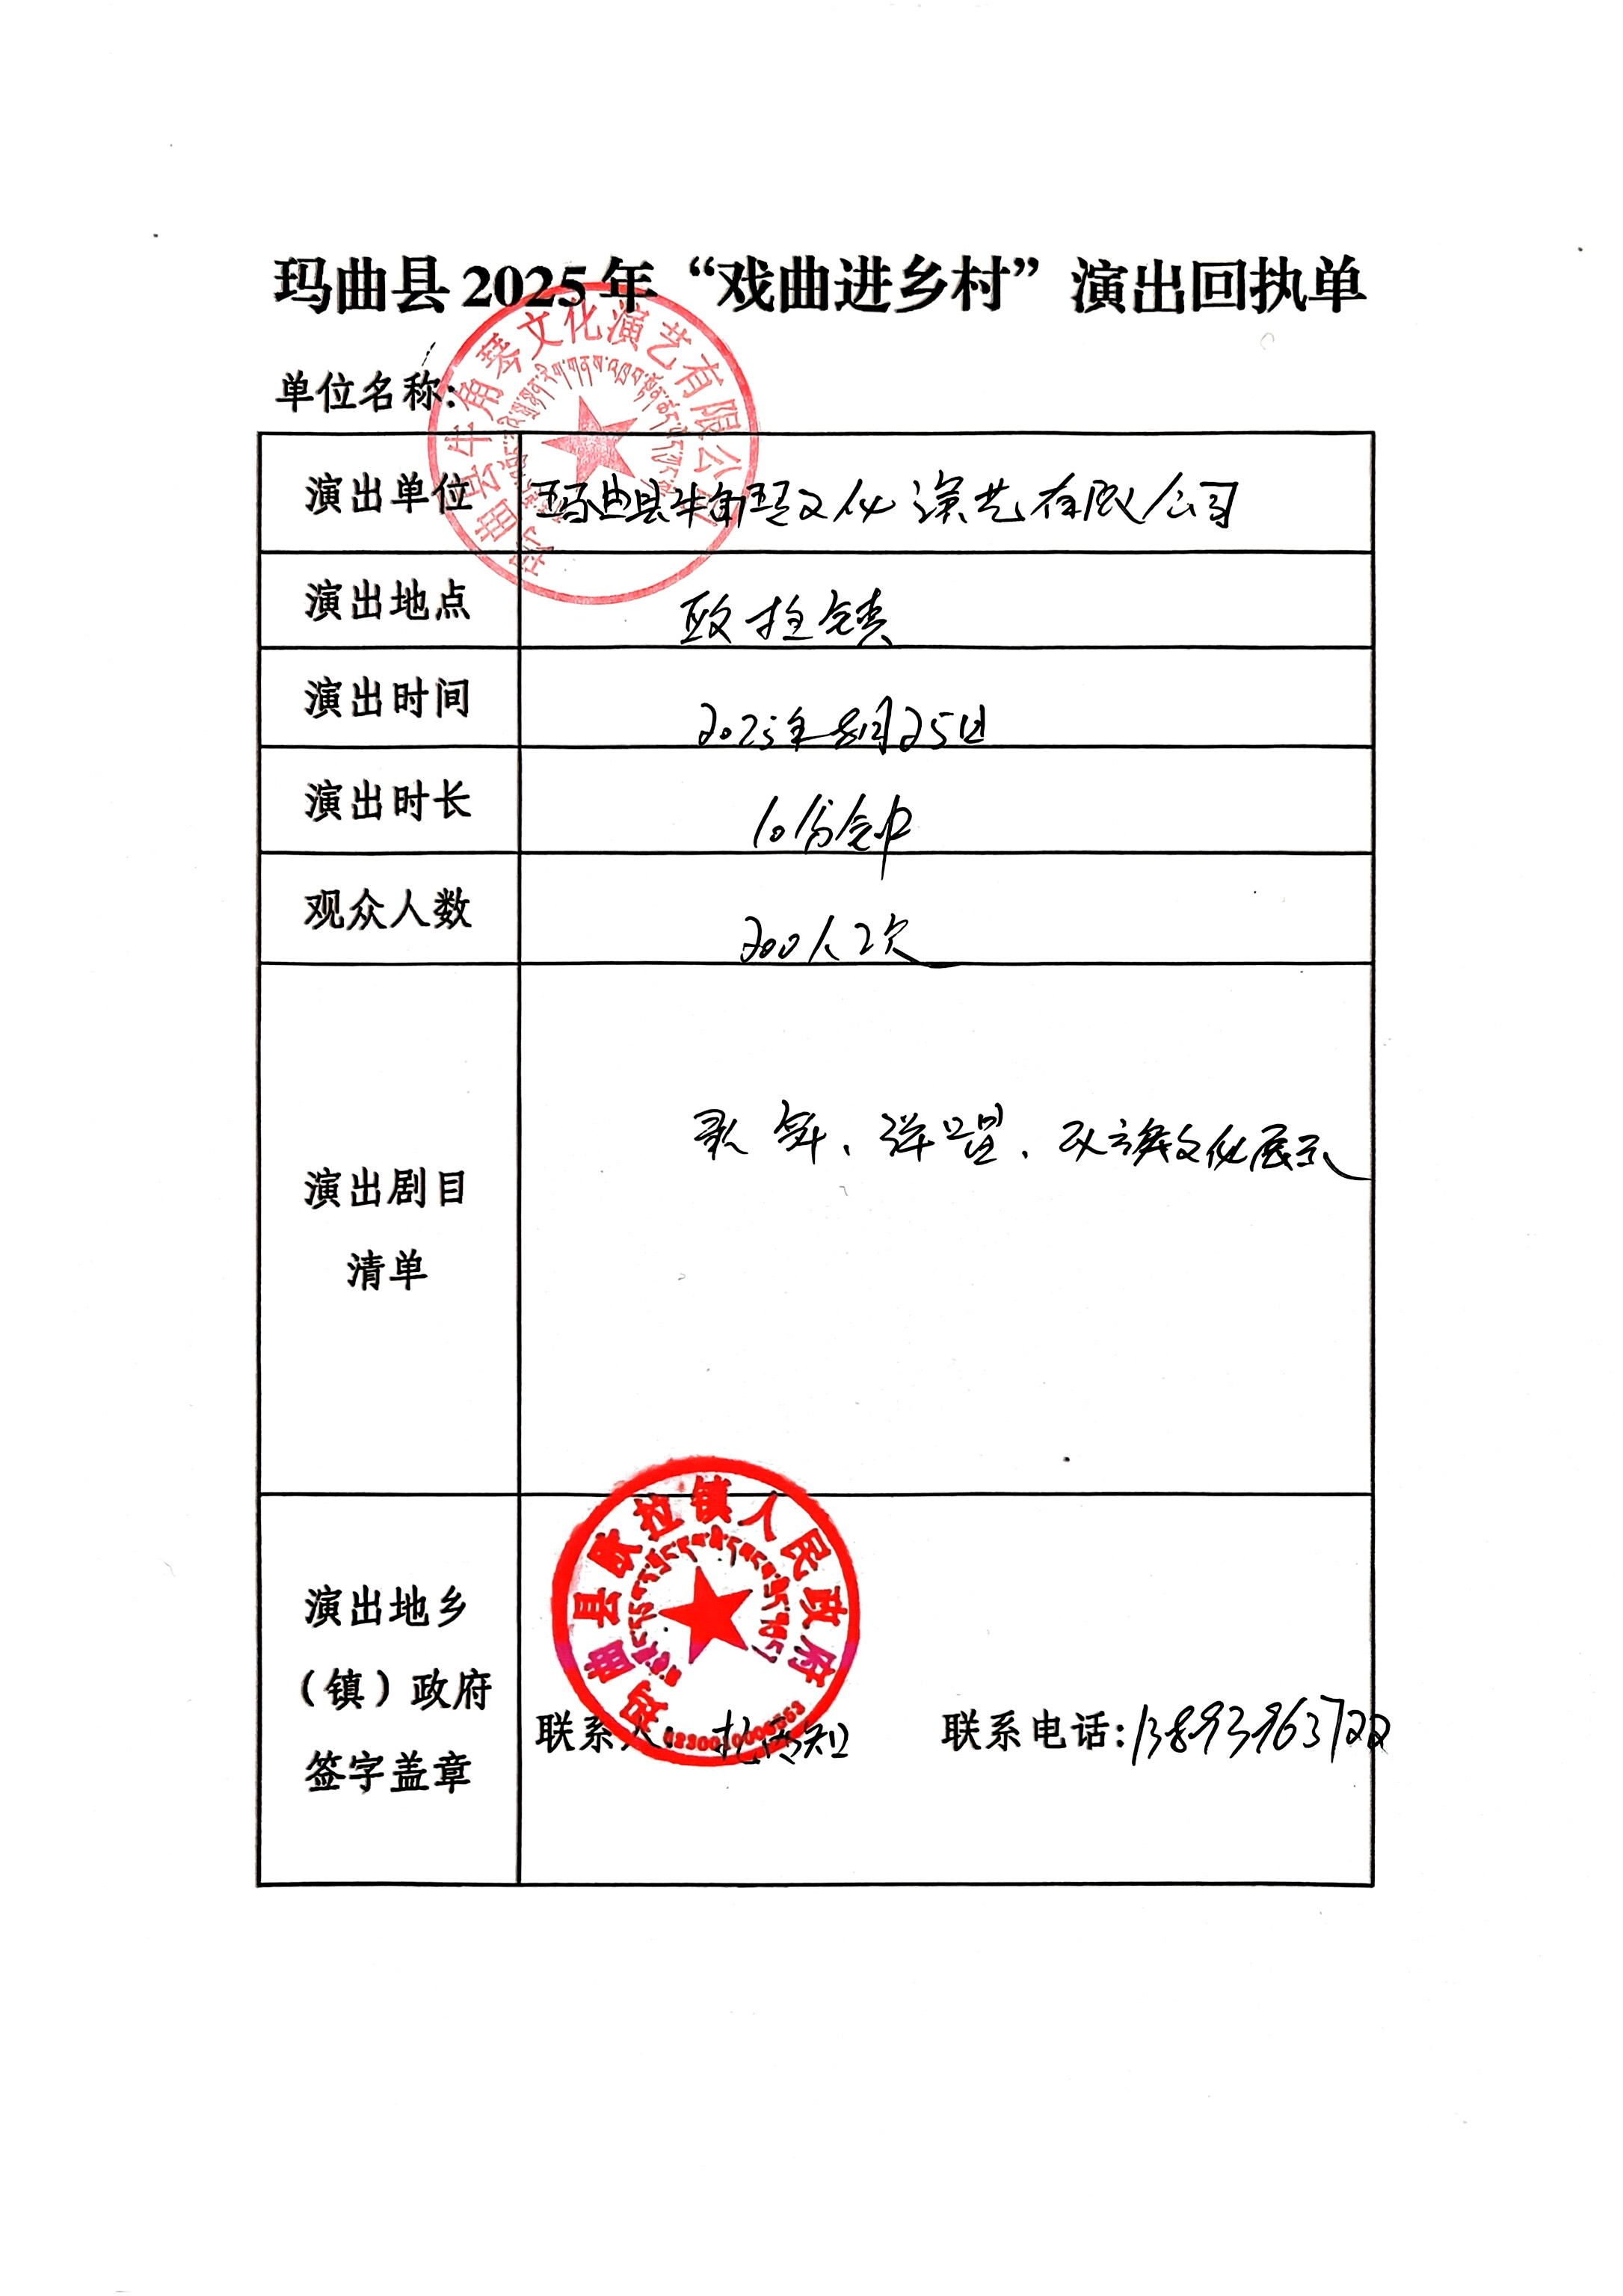 玛曲县2025年“戏曲进乡村”演出回执单
单位名称:
玛曲县牛角琴文化演艺有限公司
演出单位 玛曲县牛角琴文化演艺有限公司
演出地点 欧拉镇
演出时间 2025年8月25日
演出时长 10分钟
观众人数 200人次
演出剧目 歌舞、弹唱、民族文化展示
清单
玛曲县欧拉镇人民政府
演出地乡
（镇）政府
联系人: 知 联系电话:13893963722
签字盖章